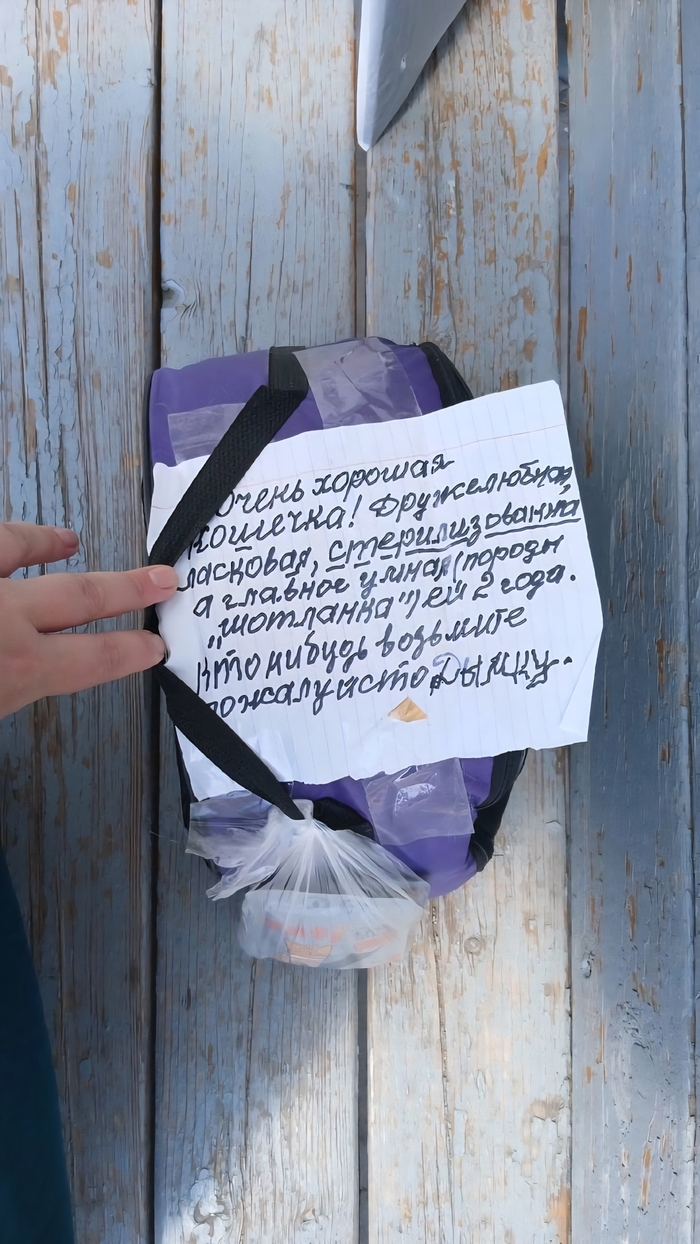 Очень хорошая
кошечка! Дружелюбная,
ласковая, стерилизованна
а главное умная (породы
"шотланка") ей 2 года.
Кто нибудь возьмите
пожалуйсто Дымку.